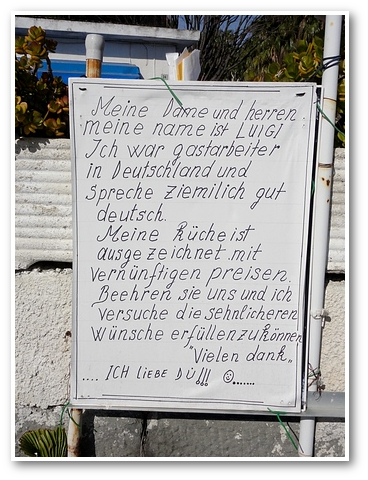 Meine Dame und herren
meine name ist LUIGI
Ich war gastarbeiter
in Deutschland und
Spreche ziemilich gut
deutsch.
Meine Küche ist
ausgezeichnet mit
vernünftigen preisen.
Beehren sie uns und ich
versuche die sehnlicheren
Wünsche erfüllenzukönnen
"Vielen dank"
.... ICH LIEBE DÜ!!! ☺.......